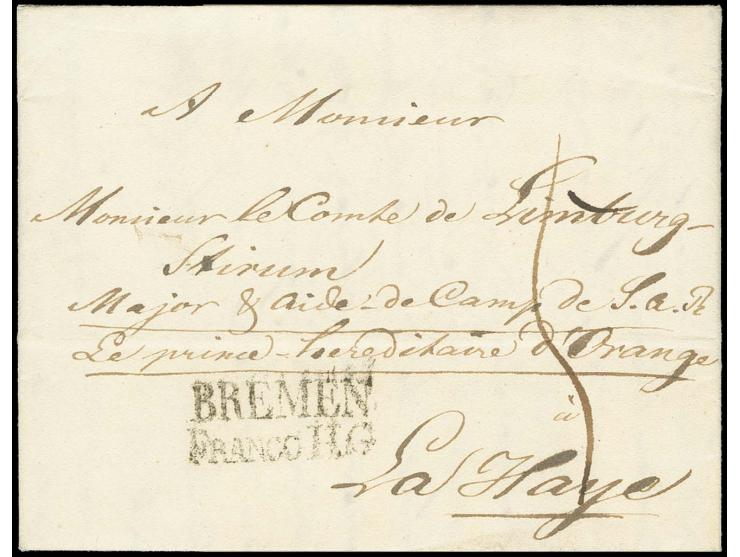 A Monsieur
Monsieur le Comte de Limburg-
Stirum
Major & aide-de-Camp de S. a. R
Le prince-hereditaire d'Orange
BREMEN
FRANCO H.G
à
La Haye